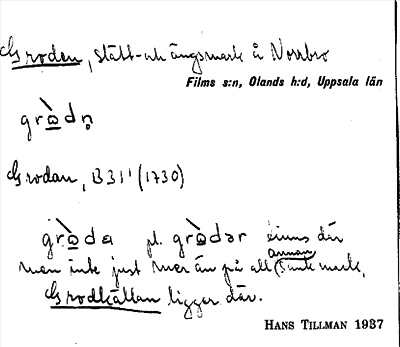 Groden, slått- och ängsmark å Norrbo
Films s:n, Olands h:d, Uppsala län
grò̠dn̥
Grodan, B 31¹ (1730)
grò̠da pl. grò̠dər finns där
men inte just mer än på all annan sank mark.
Grodkällan ligger där.
HANS TILLMAN 1937